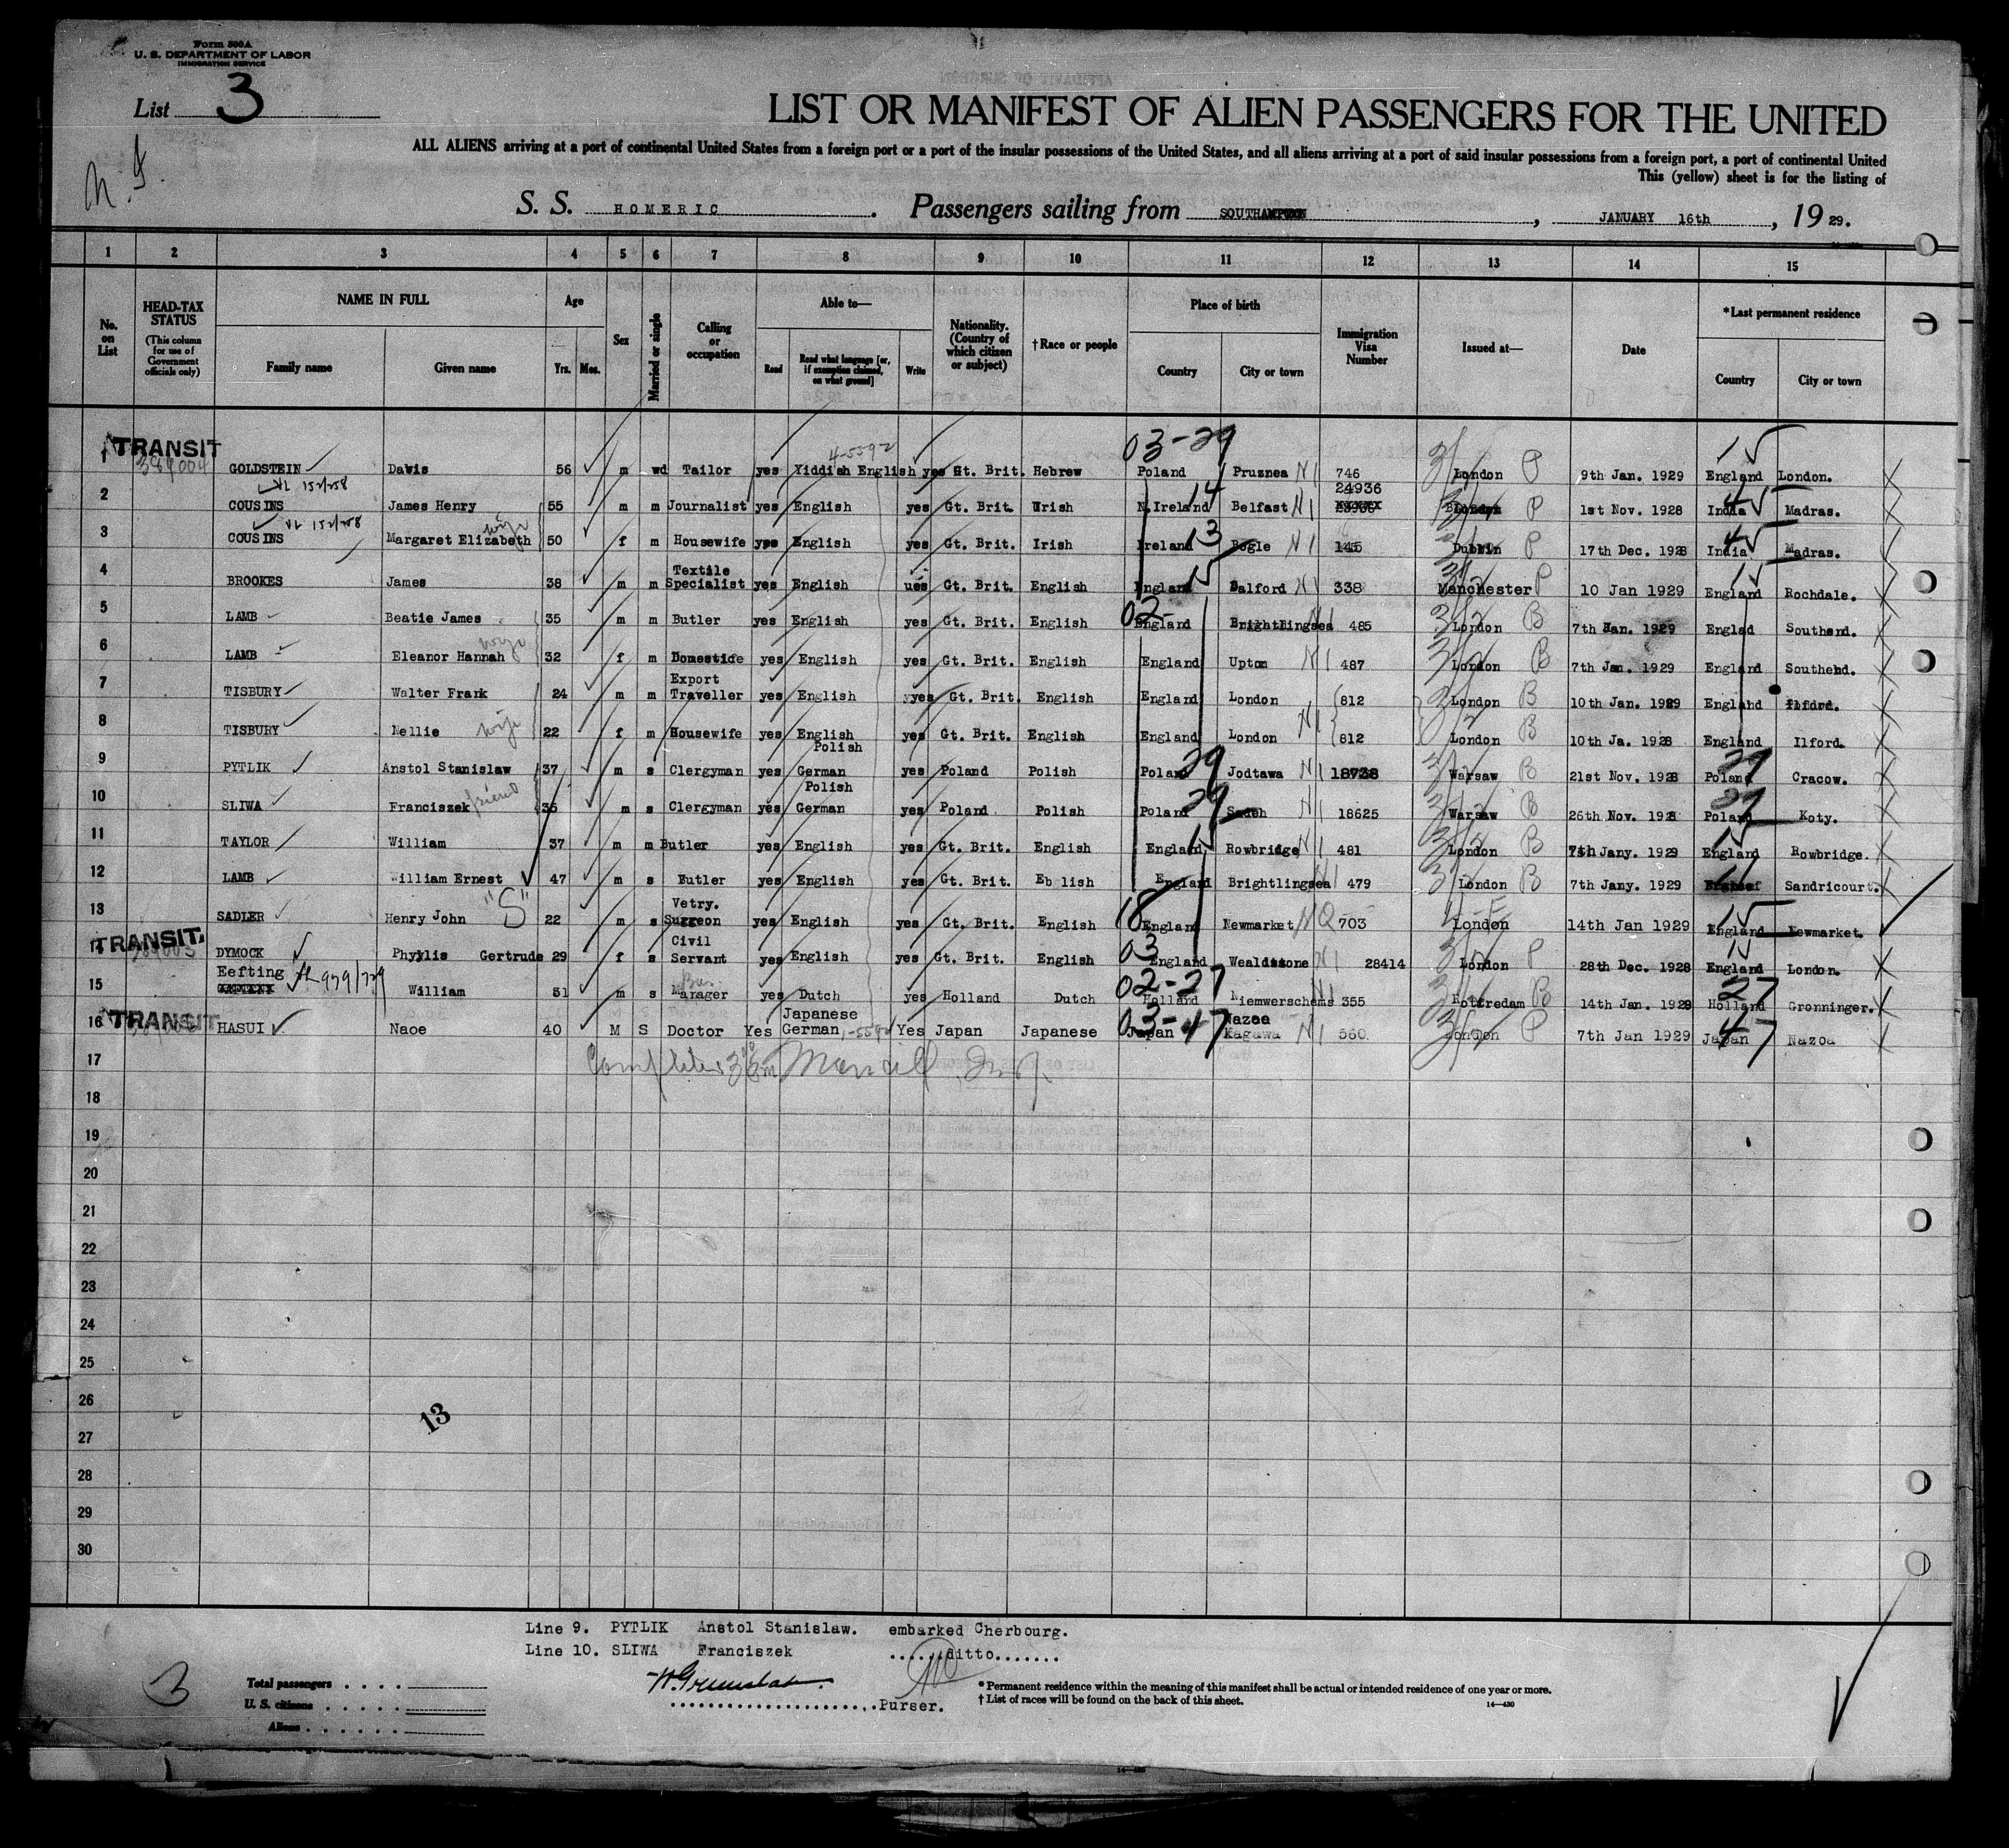 Form 500A
U. S. DEPARTMENT OF LABOR
IMMIGRATION SERVICE
List 3
LIST OR MANIFEST OF ALIEN PASSENGERS FOR THE UNITED
ALL ALIENS arriving at a port of continental United States from a foreign port or a port of the insular possessions of the United States, and all aliens arriving at a port of said insular possessions from a foreign port, a port of continental United
This (yellow) sheet is for the listing of
S. S. HOMERIC. Passengers sailing from SOUTHAMPTON, JANUARY 16th, 19 29.
1 2 3 4 5 6 7 8 9 10 11 12 13 14 15
No. on List
HEAD-TAX STATUS
(This column for use of Government officials only)
NAME IN FULL
Family name Given name
Age
Yrs. Mos.
Sex
Married or single
Calling or occupation
Able to—
Read Read what language [or, if exemption claimed, on what ground] Write
Nationality. (Country of which citizen or subject)
† Race or people
Place of birth
Country City or town
Immigration Visa Number
Issued at—
Date
*Last permanent residence
Country City or town
1 TRANSIT 389004 GOLDSTEIN Davis 56 m wd Tailor yes Yiddish English yes Gt. Brit. Hebrew 03-29 Poland Pruznea N1 746 London P 9th Jan. 1929 15 England London.
VL 152/258
2 COUSINS James Henry 55 m m Journalist yes English yes Gt. Brit. Urish 14 N.Ireland Belfast N1 24936 P 1st Nov. 1928 45 India Madras.
VL 152/258
3 COUSINS Margaret Elizabeth wife 50 f m Housewife yes English yes Gt. Brit. Irish 13 Ireland Bogle N1 145 Dublin P 17th Dec. 1928 45 India Madras.
4 BROOKES James 38 m m Textile Specialist yes English ues Gt. Brit. English 15 England Salford N1 338 Manchester P 10 Jan 1929 15 England Rochdale.
5 LAMB Beatie James 35 m m Butler yes English yes Gt. Brit. English 02- England Brightlingsea N1 485 London B 7th Jan. 1929 Englad Southend.
6 LAMB Eleanor Hannah wife 32 f m Domestice yes English yes Gt. Brit. English England Upton N1 487 London B 7th Jan. 1929 England Southend.
7 TISBURY Walter Frank 24 m m Export Traveller yes English yyes Gt. Brit. English England London 812 London B 10th Jan. 1929 England Ilford.
8 TISBURY Nellie wife 22 f m Housewife yes English yes Gt. Brit. English England London N1 812 London B 10th Ja. 1928 England Ilford.
9 PYTLIK Anstol Stanislaw 37 m s Clergyman yes Polish German yes Poland Polish 29 Poland Jodtawa N1 18738 Warsaw B 21st Nov. 1928 29 Poland Cracow.
10 SLIWA Franciszek friend 35 m s Clergyman yes Polish German yes Poland Polish 29 Poland N1 18625 Warsaw B 26th Nov. 1928 29 Poland Koty.
11 TAYLOR William 37 m m Butler yes English yes Gt. Brit. English 15 England Rowbridge N1 481 London B 7th Jany. 1929 15 England Rowbridge.
12 LAMB William Ernest 47 m s Butler yes English yes Gt. Brit. Eb lish England Brightlingsea N1 479 London B 7th Jany. 1929 Sandricourt.
13 SADLER Henry John "S" 22 m s Vetry. Surgeon yes English yes Gt. Brit. English England Newmarket NQ 703 London 14th Jan 1929 15 England Newmarket.
14 TRANSIT. 389003 DYMOCK Phyllis Gertrude 29 f s Civil Servant yes English yes Gt. Brit. English 03 England Wealdstone N1 28414 London P 28th Dec. 1928 15 England London.
15 Eefting William 31 m s Bus. Manager yes Dutch yes Holland Dutch 02-27 Holland Niemwerschems 355 Rotterdam B 14th Jan. 1929 27 Holland Gronninger.
16 TRANSIT HASUI Naoe 40 M S Doctor Yes Japanese German Yes Japan Japanese 03-47 Japan Nazoa Kagawa N1 560 London P 7th Jan 1929 47 Japan Nazoa
17
18
19
20
21
22
23
24
25
26
27
28
29
30
13
Line 9. PYTLIK Anstol Stanislaw. embarked Cherbourg.
Line 10. SLIWA Franciszek ......ditto.......
3
Total passengers
U. S. citizens
Aliens
Purser.
* Permanent residence within the meaning of this manifest shall be actual or intended residence of one year or more.
† List of races will be found on the back of this sheet.
14—430